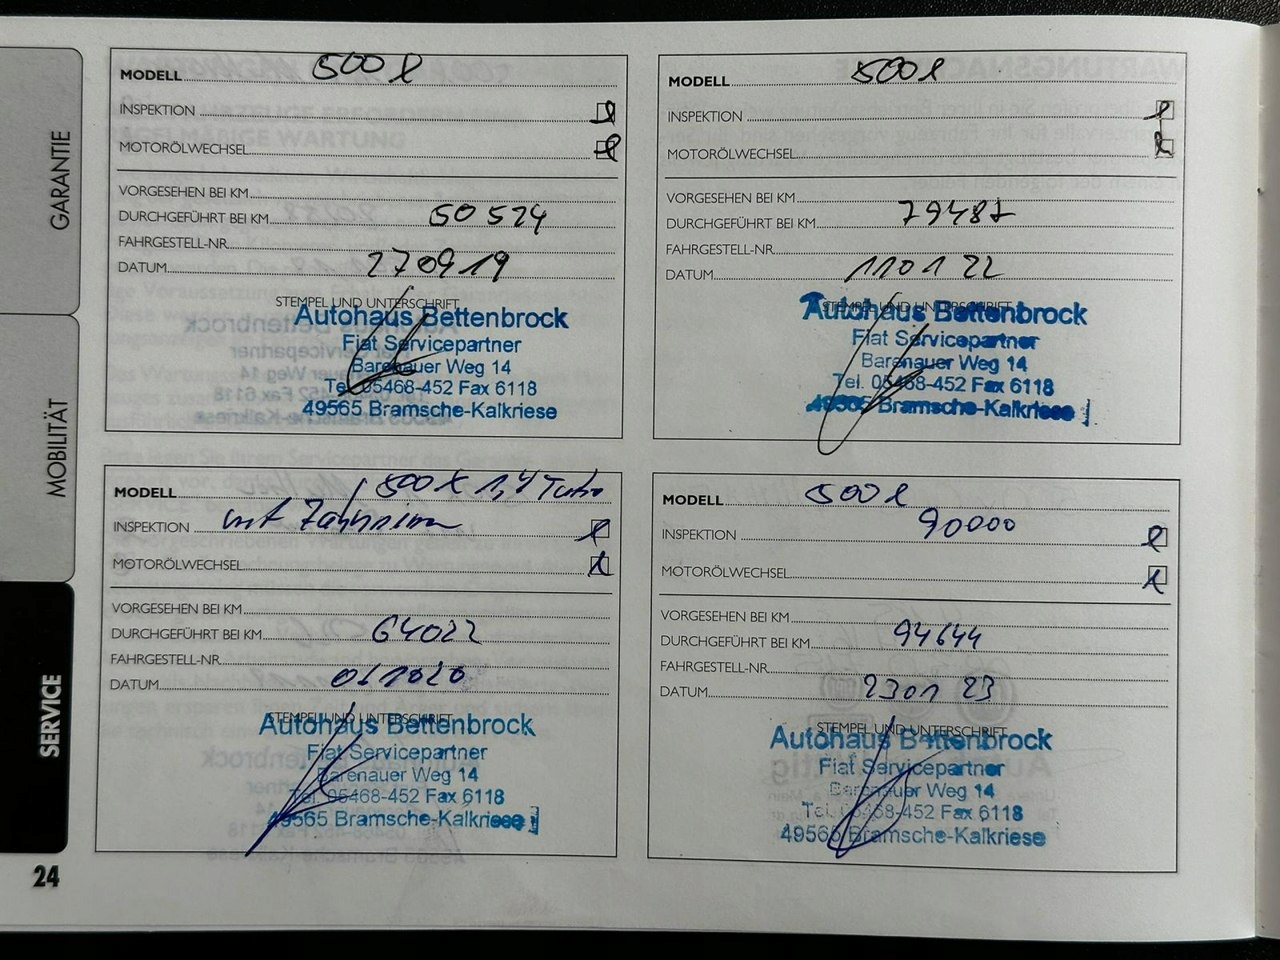 GARANTIE
MOBILITÄT
SERVICE
24
MODELL 500 l
INSPEKTION
MOTORÖLWECHSEL
VORGESEHEN BEI KM
DURCHGEFÜHRT BEI KM 50 524
FAHRGESTELL-NR.
DATUM 270919
STEMPEL UND UNTERSCHRIFT
Autohaus Bettenbrock
Fiat Servicepartner
Barenauer Weg 14
Tel. 05468-452 Fax 6118
49565 Bramsche-Kalkriese
MODELL 500 l
INSPEKTION
MOTORÖLWECHSEL
VORGESEHEN BEI KM
DURCHGEFÜHRT BEI KM 79487
FAHRGESTELL-NR.
DATUM 1101 22
STEMPEL UND UNTERSCHRIFT
Autohaus Bettenbrock
Fiat Servicepartner
Barenauer Weg 14
Tel. 05468-452 Fax 6118
49565 Bramsche-Kalkriese
MODELL 500 X 1,4 Turbo
INSPEKTION mit Zahnriem
MOTORÖLWECHSEL
VORGESEHEN BEI KM
DURCHGEFÜHRT BEI KM 64022
FAHRGESTELL-NR.
DATUM
STEMPEL UND UNTERSCHRIFT
Autohaus Bettenbrock
Fiat Servicepartner
Barenauer Weg 14
Tel. 05468-452 Fax 6118
49565 Bramsche-Kalkriese
MODELL 500 l
INSPEKTION 90000
MOTORÖLWECHSEL
VORGESEHEN BEI KM
DURCHGEFÜHRT BEI KM 94644
FAHRGESTELL-NR.
DATUM 2301 23
STEMPEL UND UNTERSCHRIFT
Autohaus Bettenbrock
Fiat Servicepartner
Barenauer Weg 14
Tel. 05468-452 Fax 6118
49565 Bramsche-Kalkriese